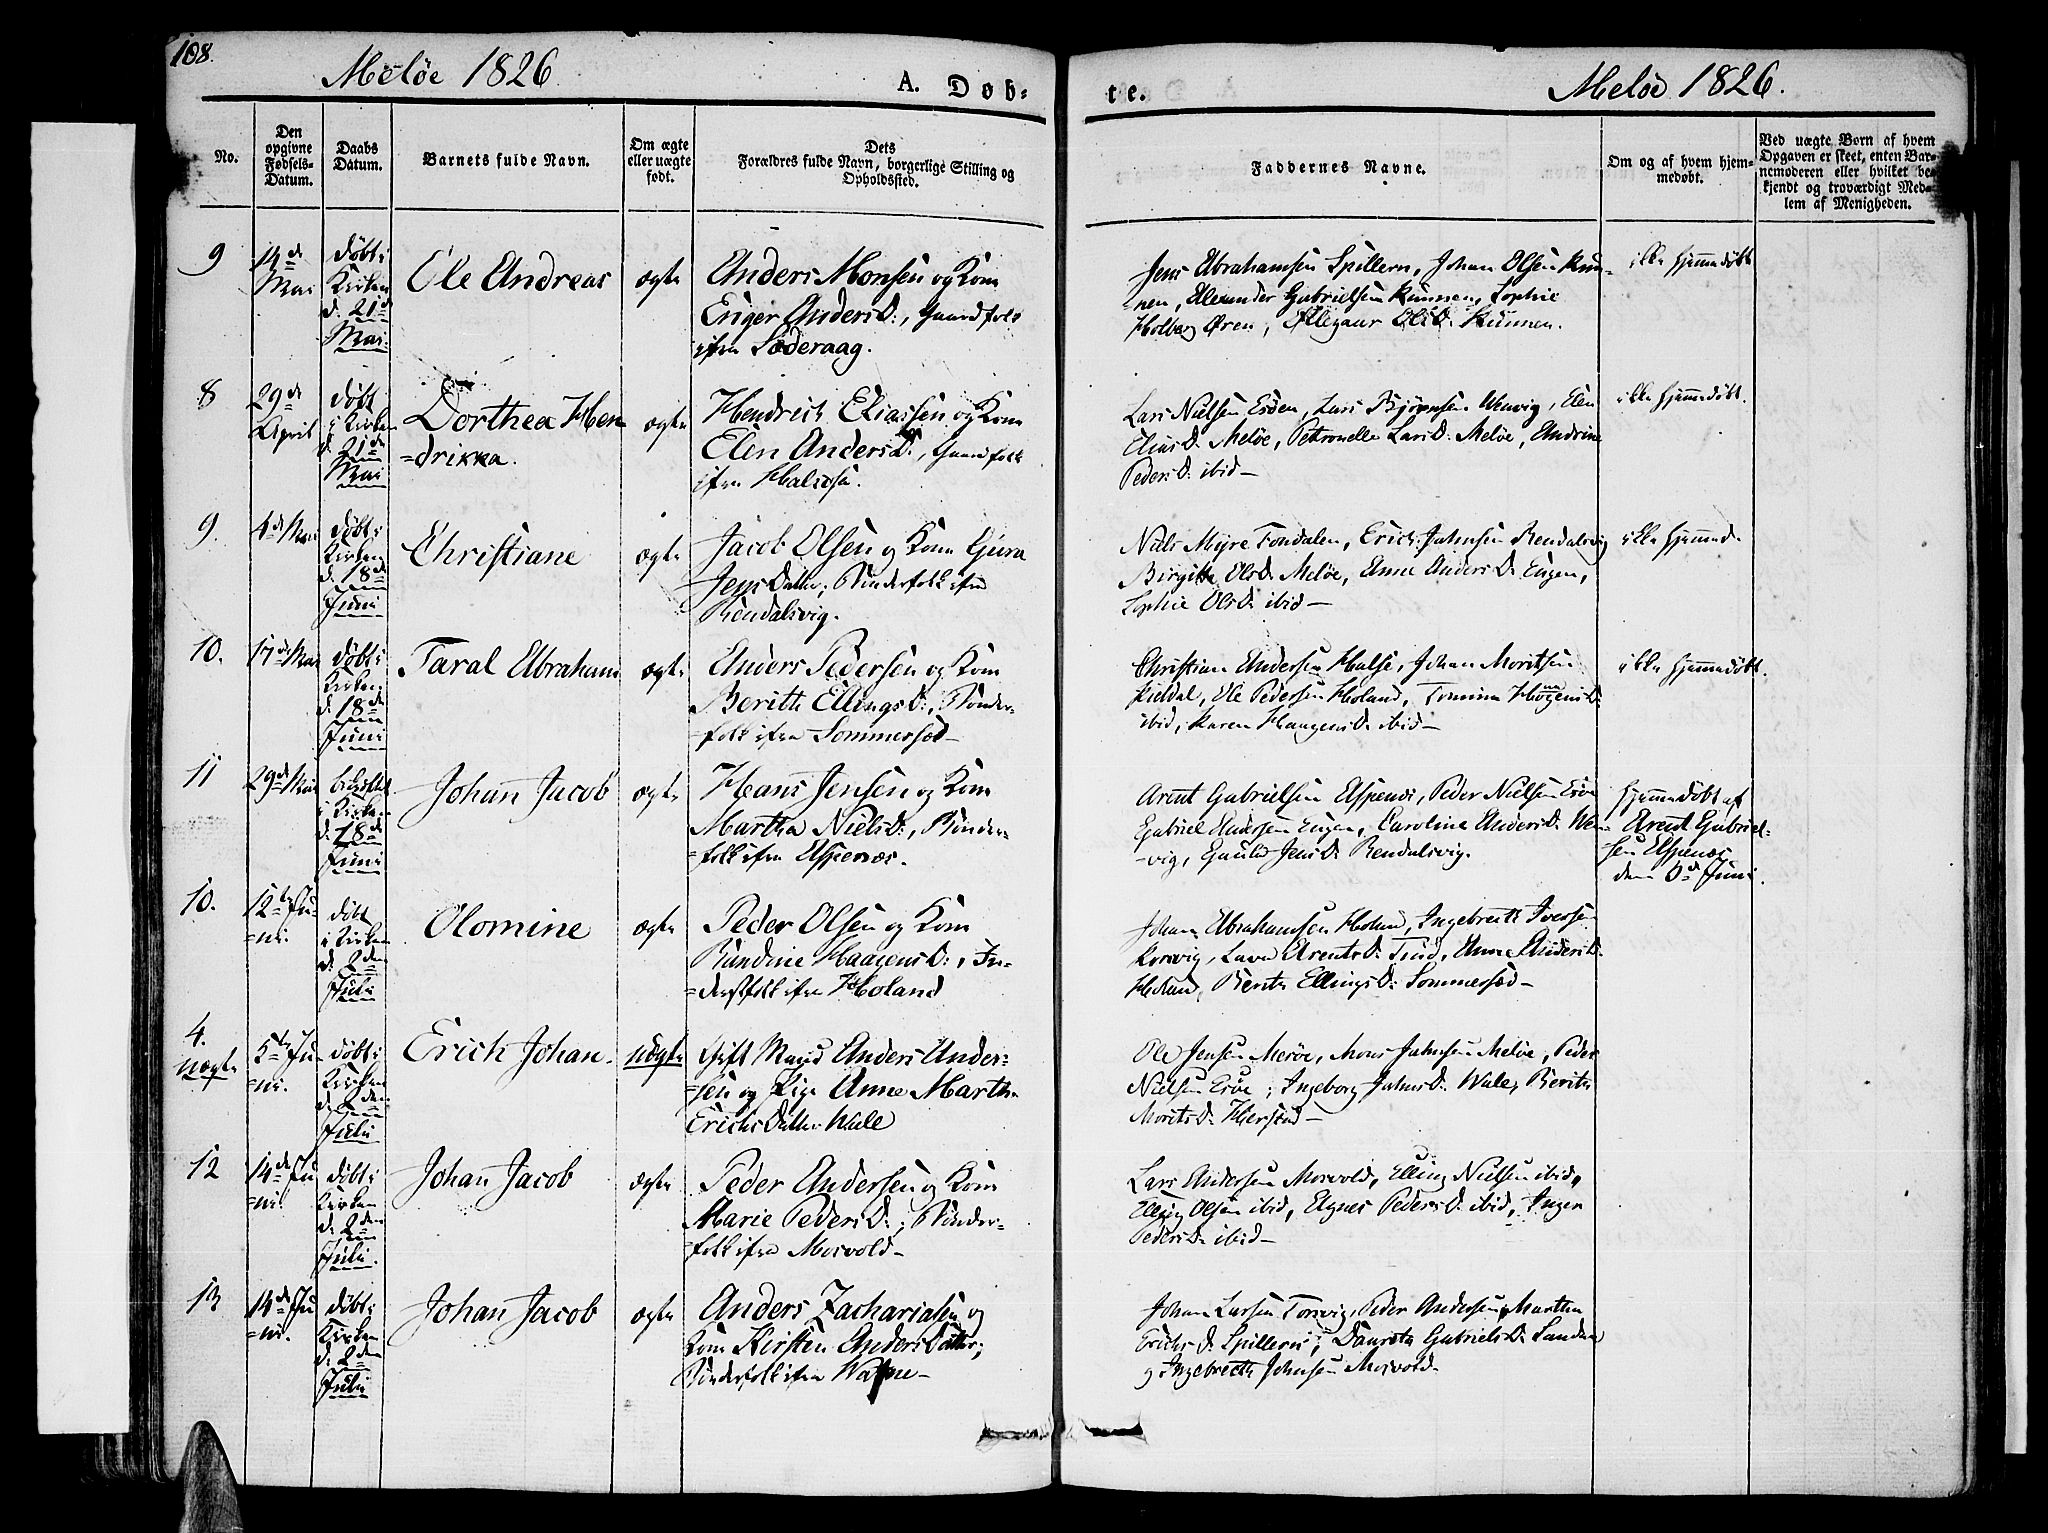 108.
Meløe 1826
A. Døb-
te.
Meløe 1826.
No.
Den
opgivne
Fødsels-
Datum.
Daabs
Datum.
Barnets fulde Navn.
Om ægte
eller uægte
født.
Dets
Forældres fulde Navn, borgerlige Stilling og
Opholdssted.
Faddernes Navne.
Om og af hvem hjem-
medøbt.
Ved uægte Børn af hvem
Opgaven er skeet, enten Bar-
nemoderen eller hvilket be-
kjendt og troværdigt Med-
lem af Menigheden.
9
14de
Mai
døbt i
Kirken
d. 21de
Mai
Ole Andreas
ægte
Anders Monsen og Kone
Andersd:, Gaardfolk
ifra Søderaag.
Jens Abrahamsen Spillern, Johan Olsen Kun-
nen, Alexander Gabrielsen Kunnen, Sophie
Holberg Øren, Olsd: Kunnen.
ikke hjemmedøbt
8
29de
April
døbt
i Kirken
d. 21de
Mai
Dorthea Hen
=drikka.
ægte
Hendrich Eliassen og Kone
Elen Andersd:, Gaardfolk
ifra Halsosen.
Lars Nielsen Esøen, Lars Bjørnsen Wenvig, Elen
Eliasd: Meløe, Petronelle Larsd: Meløe, Andrine
Pedersd: ibid—
ikke hjemmedøbt.
9.
4de Mai
døbt i
Kirken
d. 18de
Juni
Christiane
ægte
Jacob Olsen og Kone Gjura
Jens Datter, Bønderfolk ifra
Rendalsvig.
Niels Myre Fondalen, Erich Jahnsen Rendalsvig
Birgitte Olsd: Meløe, Anne Andersd: Eugen,
Sophie Olsd: ibid—
ikke hjemmed.
10.
17de Mai
døbt i
Kirken
d. 18de
Juni
Taral Abraham
ægte
Anders Pedersen og Kone
Berith Ellingsd:, Bønder-
folk ifra Sommersæd—
Christian Andersen Halse, Johan Moritsen
Kieldal, Ole Pedersen Holand,
ibid, Karen Haagensd: ibid—
ikke hjemmedøbt.
11
29de Mai
i Kirken
d. 18de
Juni
Johan Jacob
ægte
Hans Jensen og Kone
Martha Nielsd:, Bønder-
=folk ifra Espenæs.
Arent Gabrielsen Espenæs, Peder Nielsen
Gabriel Andersen Eugen, Caroline Andersd: Wen-
-vig, Jensd: Rendalsvig.
hjemmedøbt af
Arent Gabriel-
sen Espenæs
den 3de Juni.
10.
12te Ju-
=ni.
døbt
i Kirken
d. 2den
Juli
Olomine
ægte
Peder Olsen og Kone
Rundine Haagensd:, In-
=derstfolk ifra Holand
Johan Abrahamsen Holand, Ingebreth Iversen
Korsvig, Arentsd: Anne Andersd:
Holand, Berith Ellingsd: Sommersæd—
4.
uægte
5te Ju-
ni.
døbt i
Kirken
d. 2den
Juli
Erich Johan.
uægte
Gift Mand Anders Ander-
=sen og Pige Anne Marth.
Erichs Datter Wale
Ole Jensen Meløe, Mons Jahnsen Meløe, Peder
Nielsen Ersøe, Ingeborg Jahnsd: Wale, Berith
Moritsd: Hierstad—
12
14de Ju
=ni.
døbt i
Kirken
d. 2den
Juli.
Johan Jacob
ægte
Peder Andersen og Kone
Marie Pedersd:, Bønder-
=folk ifra Mosvold—
Lars Andersen Mosvold, Elling Nielsen ibid,
Elling Olsen ibid, Agnes Pedersd: ibid, Inger
Pedersd: ibid—
13
14de Ju
=ni.
døbt i
Kirken
d. 2den
Juli
Johan Jacob
ægte
Anders Zachariasen og
Kone Kirsten Anders Datter;
Bønderfolk ifra
Johan Larsen Torsvig, Peder Andersen, Marthe
Erichsd: Spillern, Gabrielsd: Sanden
og Ingebreth Johnsen Mosvold.